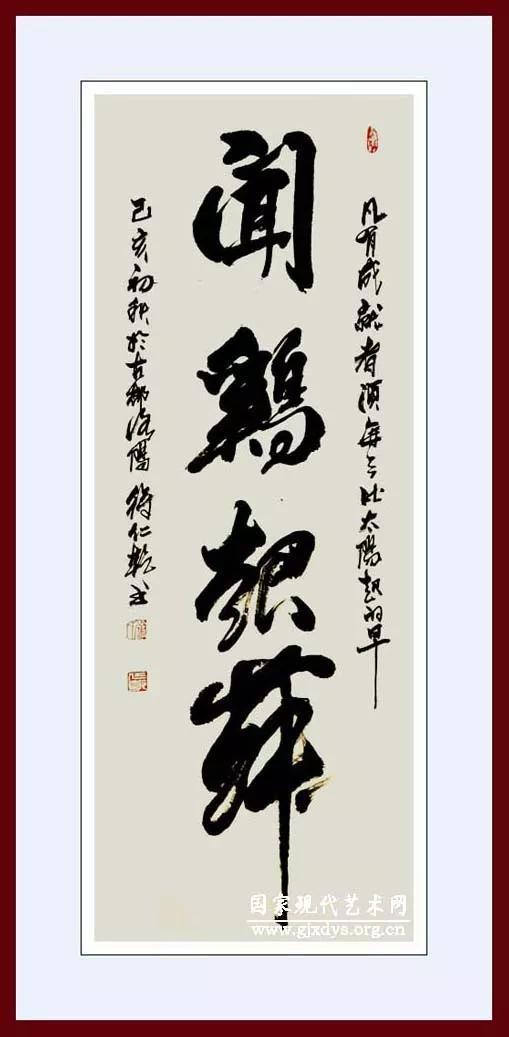 凡有成就者须每天比太阳起的早
闻鸡起舞
己亥初秋於古都洛阳 符仁乾书
国家现代艺术网
www.gjxdys.org.cn